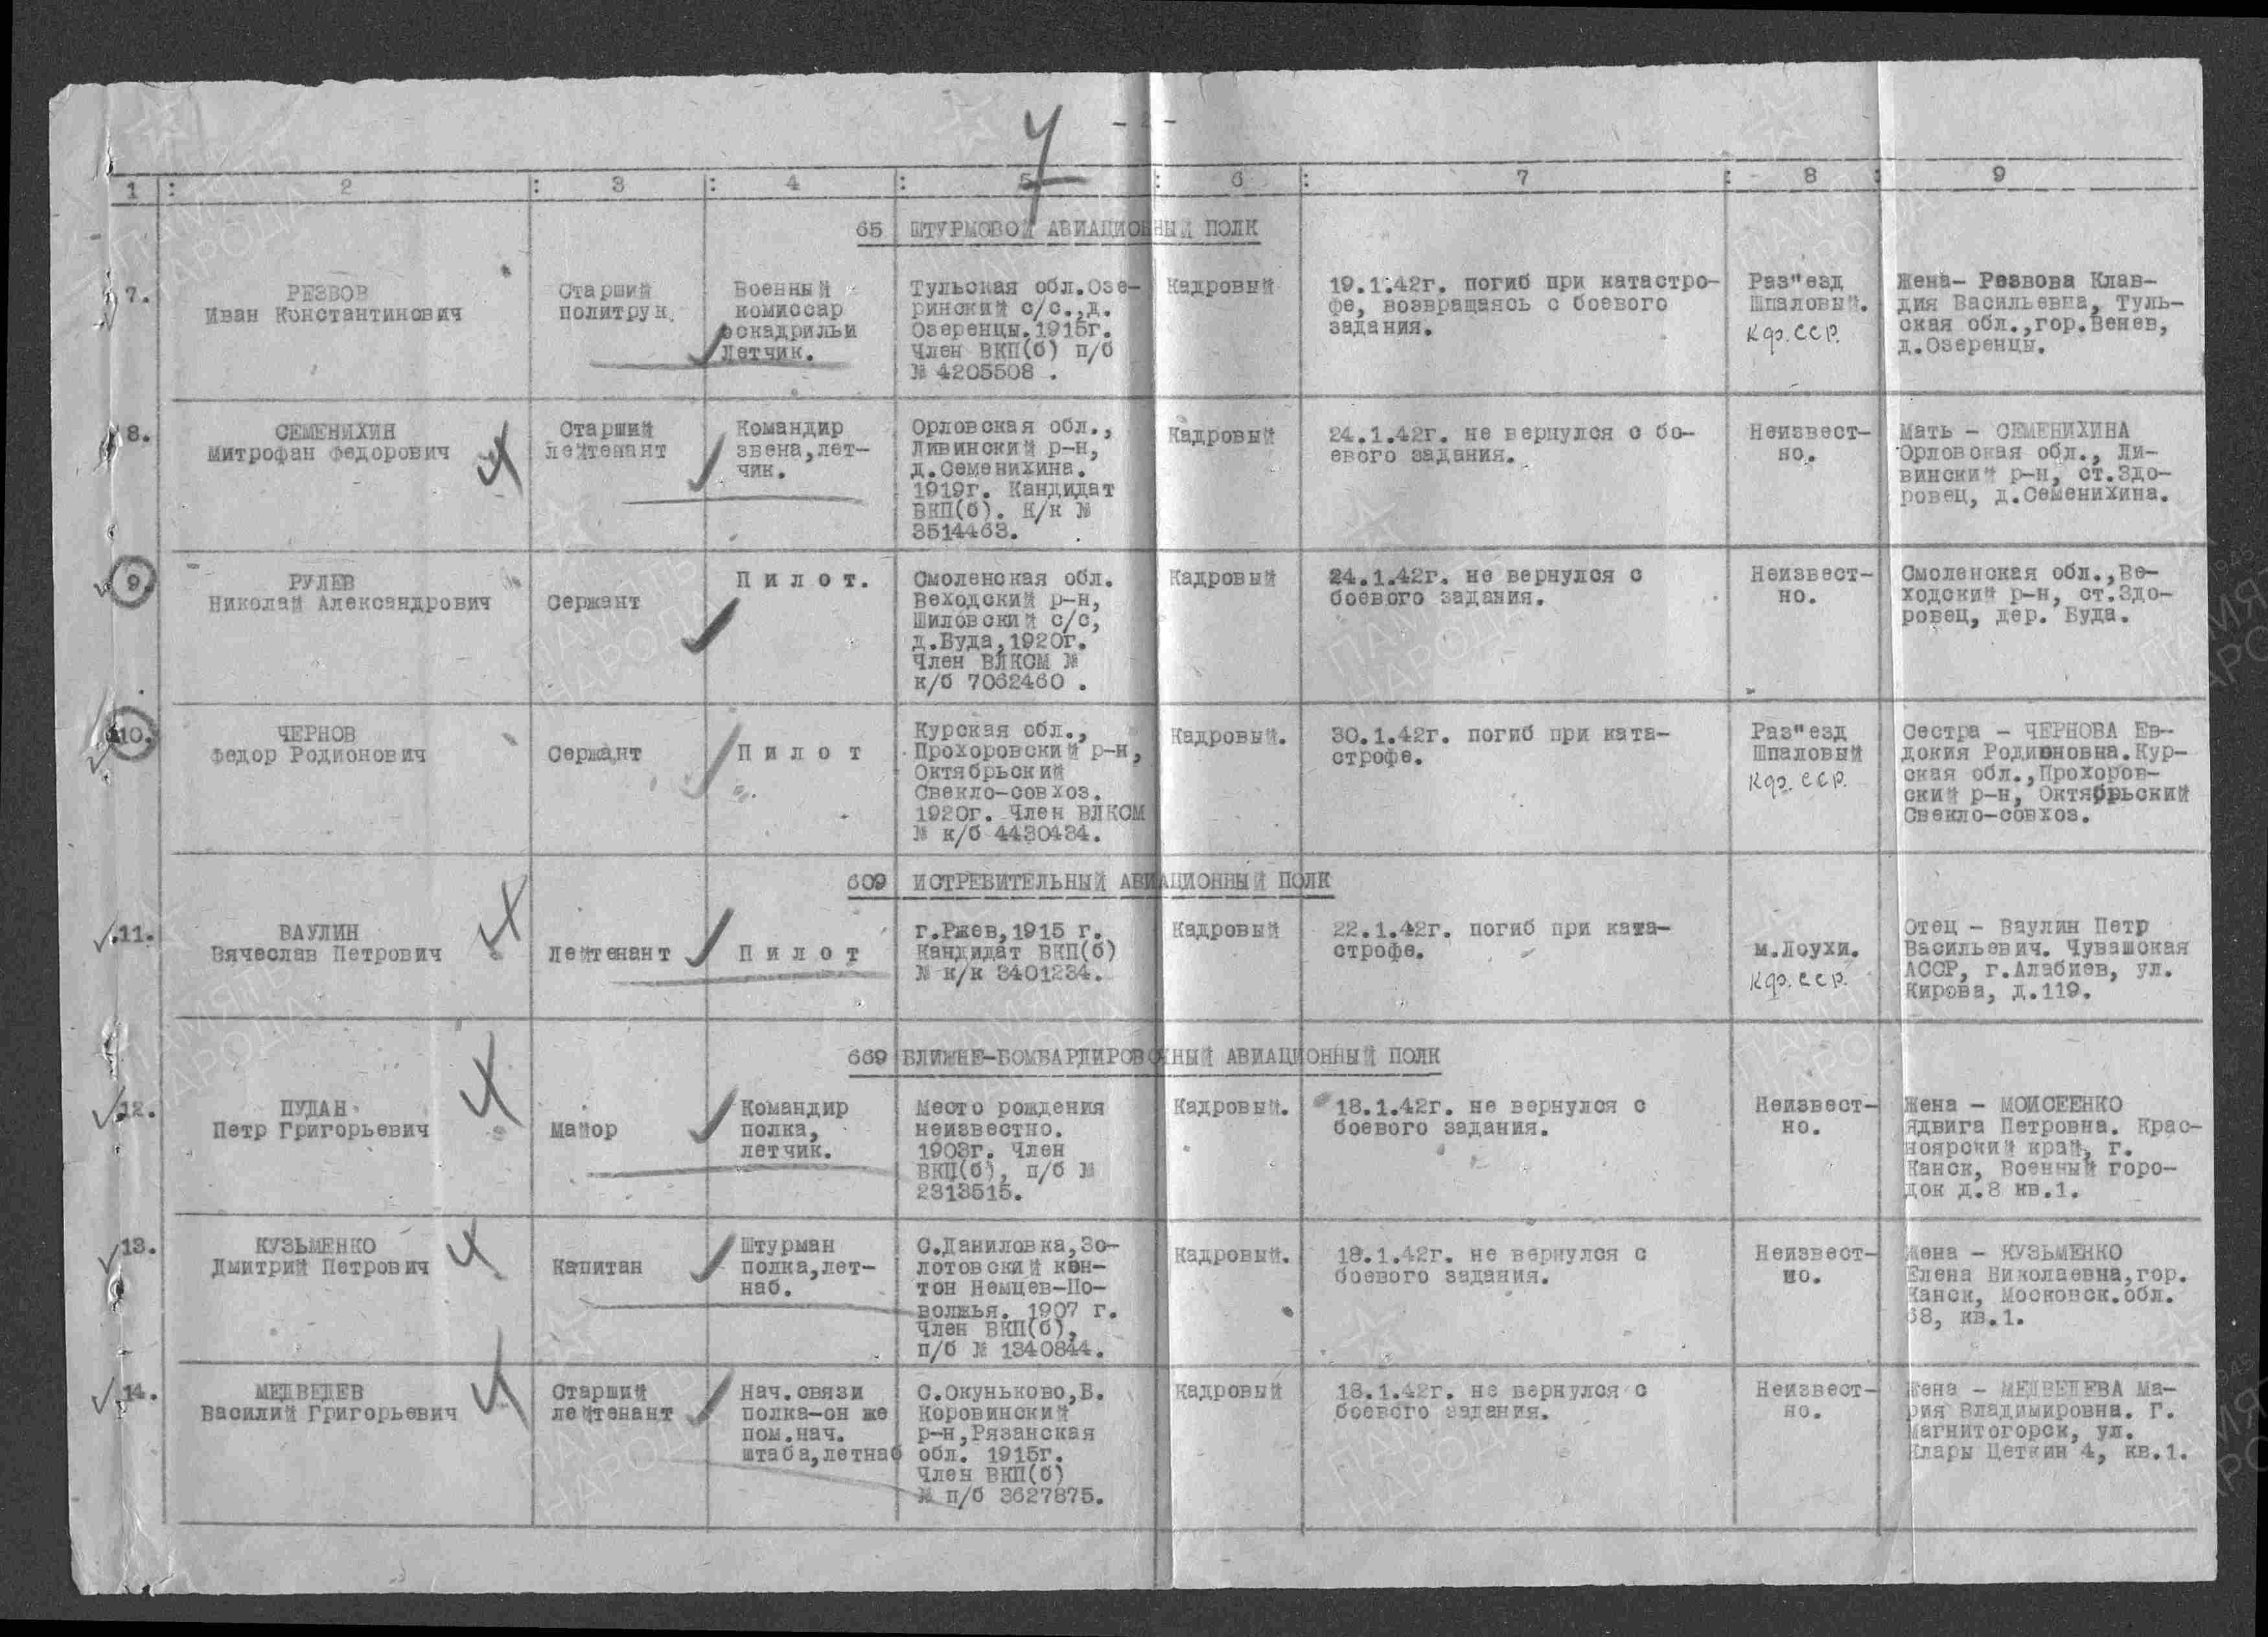 - 2 -
1 : 2 : 3 : 4 : 5 : 6 : 7 : 8 : 9
65 ШТУРМОВОЙ АВИАЦИОННЫЙ ПОЛК
7.
РЕЗВОВ
Иван Константинович
Старший
политрук.
Военный
комиссар
эскадрильи
Летчик.
Тульская обл.Озе-
ринский с/с.,д.
Озеренцы.1915г.
Член ВКП(б) п/б
№ 4205508 .
Кадровый
19.1.42г. погиб при катастро-
фе, возвращаясь с боевого
задания.
Раз"езд
Шпаловый.
Кфр. ССР.
Жена- Резвова Клав-
дия Васильевна, Туль-
ская обл.,гор.Венев,
д.Озеренцы.
8.
СЕМЕНИХИН
Митрофан Федорович
Старший
лейтенант
Командир
звена,лет-
чик.
Орловская обл.,
Ливинский р-н,
д.Семенихина.
1919г. Кандидат
ВКП(б). К/к №
3514463.
Кадровый
24.1.42г. не вернулся с бо-
евого задания.
Неизвест-
но.
Мать - СЕМЕНИХИНА
Орловская обл., Ли-
винский р-н, ст.Здо-
ровец, д.Семенихина.
9.
РУЛЕВ
Николай Александрович
Сержант
П и л о т.
Смоленская обл.
Веходский р-н,
Шиловский с/с,
д.Буда,1920г.
Член ВЛКСМ №
к/б 7062460 .
Кадровый
24.1.42г. не вернулся с
боевого задания.
Неизвест-
но.
Смоленская обл.,Ве-
ходский р-н, ст.Здо-
ровец, дер. Буда.
10.
ЧЕРНОВ
Федор Родионович
Сержант
П и л о т
Курская обл.,
Прохоровский р-н,
Октябрьский
Свекло-совхоз.
1920г. Член ВЛКСМ
№ к/б 4430434.
Кадровый.
30.1.42г. погиб при ката-
строфе.
Раз"езд
Шпаловый
Кфр. ССР.
Сестра - ЧЕРНОВА Ев-
докия Родионовна.Кур-
ская обл.,Прохоров-
ский р-н, Октябрьский
Свекло-совхоз.
609 ИСТРЕБИТЕЛЬНЫЙ АВИАЦИОННЫЙ ПОЛК
11.
ВАУЛИН
Вячеслав Петрович
Лейтенант
П и л о т
г.Ржев,1915 г.
Кандидат ВКП(б)
№ к/к 3401234.
Кадровый
22.1.42г. погиб при ката-
строфе.
м.Лоухи.
Кфр. ССР.
Отец - Ваулин Петр
Васильевич. Чувашская
АССР, г.Алабиев, ул.
Кирова, д.119.
669 БЛИЖНЕ-БОМБАРДИРОВОЧНЫЙ АВИАЦИОННЫЙ ПОЛК
12.
ПУДАН
Петр Григорьевич
Майор
Командир
полка,
летчик.
Место рождения
неизвестно.
1903г. Член
ВКП(б), п/б №
2313515.
Кадровый.
18.1.42г. не вернулся с
боевого задания.
Неизвест-
но.
Жена - МОИСЕЕНКО
Ядвига Петровна. Крас-
ноярский край, г.
Канск, Военный горо-
док д.8 кв.1.
13.
КУЗЬМЕНКО
Дмитрий Петрович
Капитан
Штурман
полка,лет-
наб.
С.Даниловка,Зо-
лотовский кан-
тон Немцев-По-
волжья. 1907 г.
Член ВКП(б),
п/б № 1340844.
Кадровый.
18.1.42г. не вернулся с
боевого задания.
Неизвест-
но.
Жена - КУЗЬМЕНКО
Елена Николаевна,гор.
Канск, Московск.обл.
68, кв.1.
14.
МЕДВЕДЕВ
Василий Григорьевич
Старший
лейтенант
Нач.связи
полка-он же
пом.нач.
штаба,летнаб
С.Окуньково,Б.
Коровинский
р-н,Рязанская
обл. 1915г.
Член ВКП(б)
№ п/б 3627875.
Кадровый
18.1.42г. не вернулся с
боевого задания.
Неизвест-
но.
Жена - МЕДВЕДЕВА Ма-
рия Владимировна. Г.
Магнитогорск, ул.
Клары Цеткин 4, кв.1.